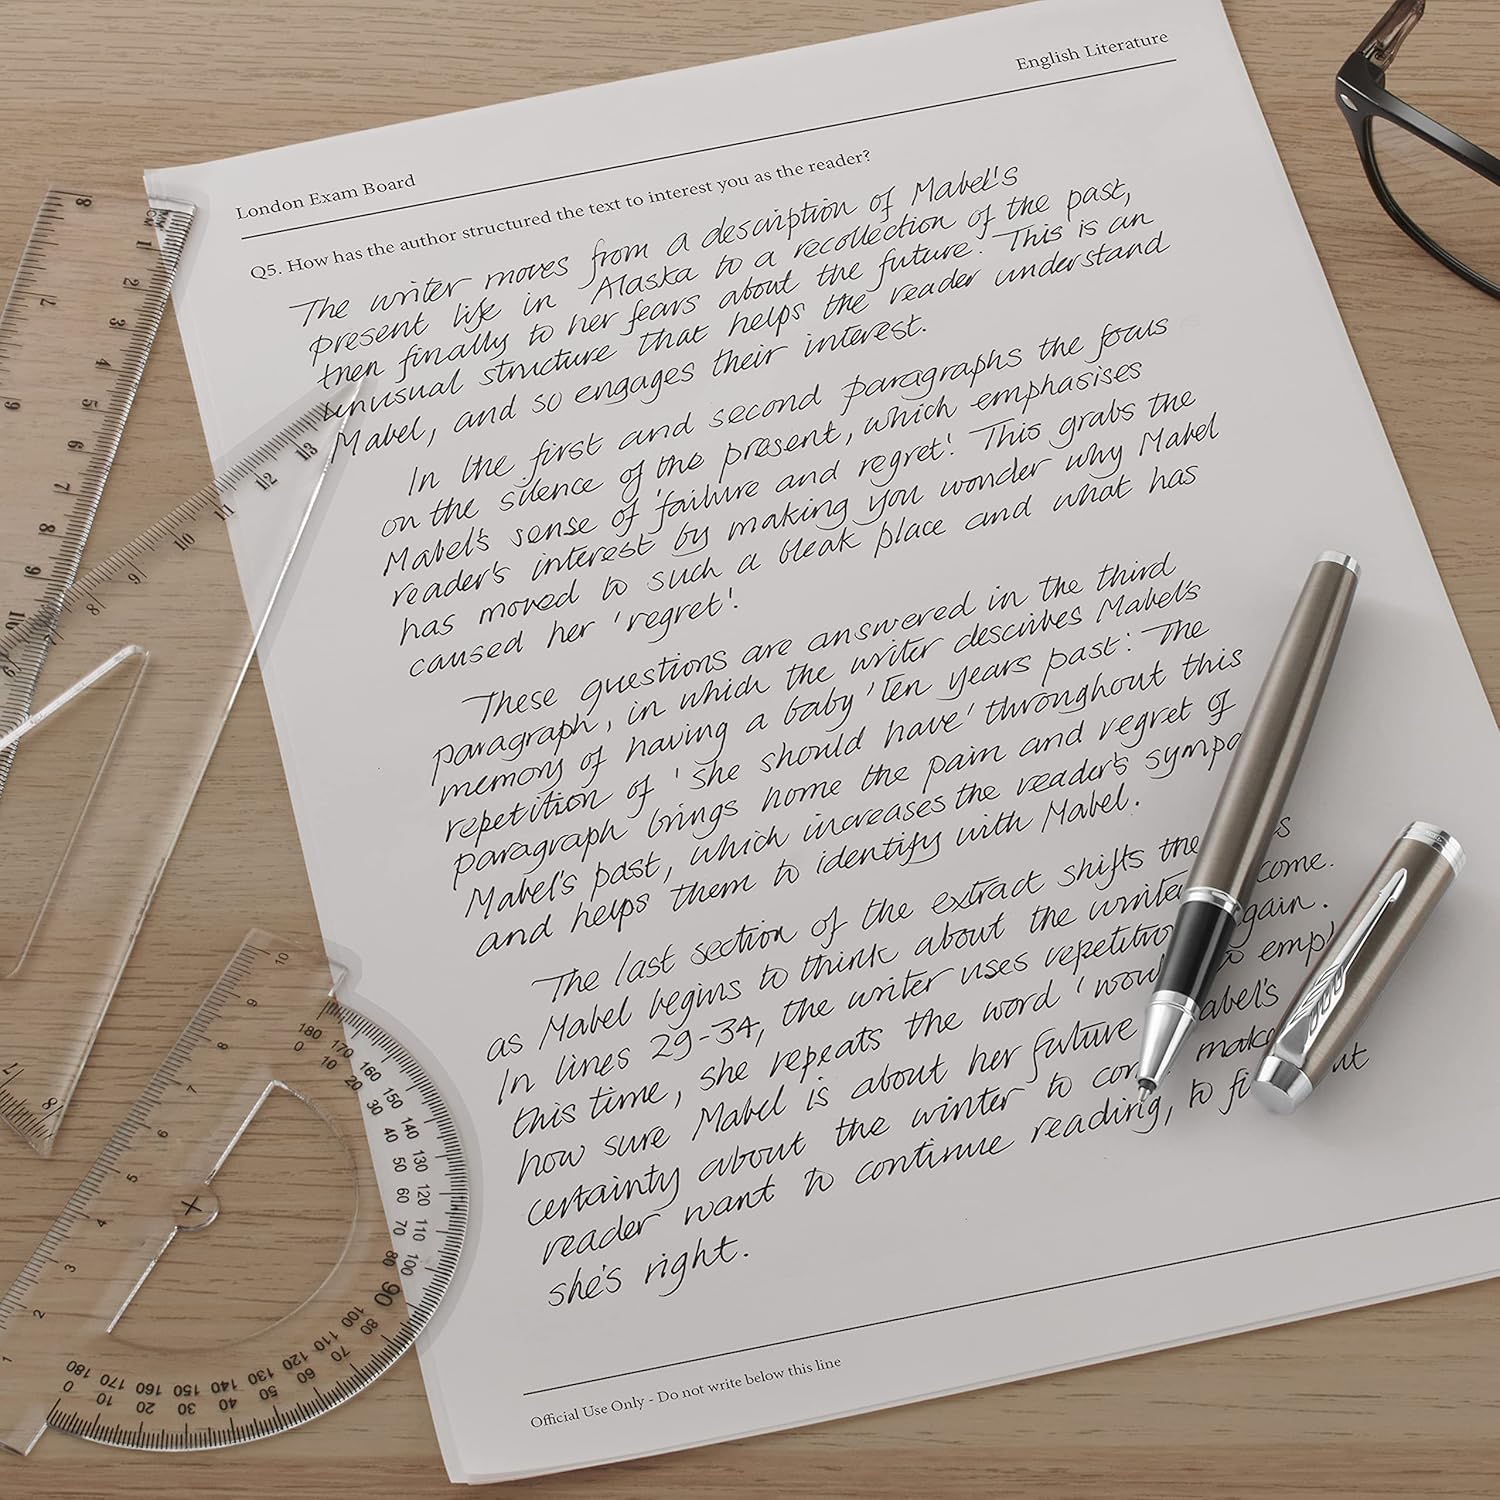 English Literature
London Exam Board
Q5. How has the author structured the text to interest you as the reader?
The writer moves from a description of Mabel's
present life in Alaska to a recollection of the past,
then finally to her fears about the future. This is an
unusual structure that helps the reader understand
Mabel, and so engages their interest.
In the first and second paragraphs the focus
on the silence of the present, which emphasises
Mabel's sense of 'failure and regret'. This grabs the
reader's interest by making you wonder why Mabel
has moved to such a bleak place and what has
caused her 'regret'.
These questions are answered in the third
paragraph, in which the writer describes Mabel's
memory of having a baby 'ten years past'. The
repetition of 'she should have' throughout this
paragraph brings home the pain and regret of
Mabel's past, which increases the reader's sympa
and helps them to identify with Mabel.
The last section of the extract shifts the s
as Mabel begins to think about the winte come.
In lines 29-34, the writer uses repetitio gain.
this time, she repeats the word 'wou o emp
how sure Mabel is about her future abel's
certainty about the winter to co make
reader want to continue reading, to fi at
she's right.
Official Use Only - Do not write below this line